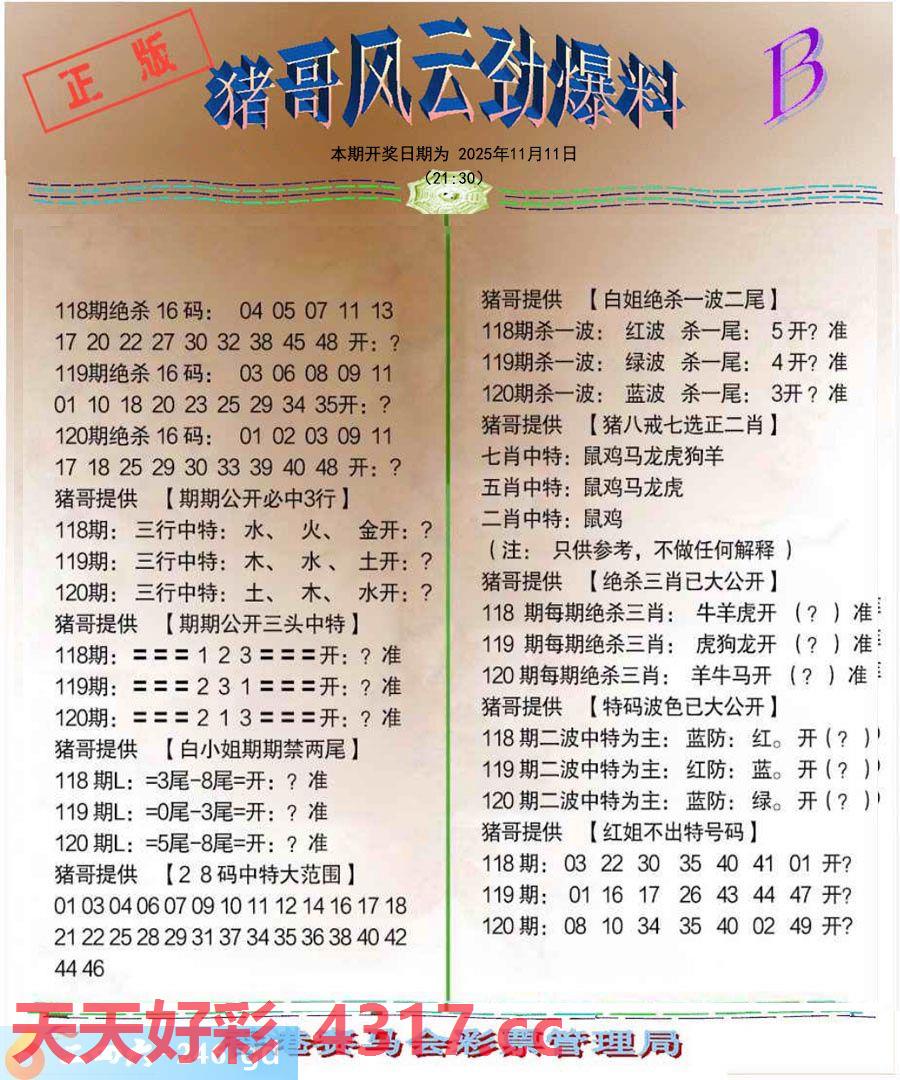 正版
猪哥风云劲爆料
B
本期开奖日期为 2025年11月11日
(21:30)
118期绝杀 16 码： 04 05 07 11 13
17 20 22 27 30 32 38 45 48 开：?
119期绝杀 16 码： 03 06 08 09 11
01 10 18 20 23 25 29 34 35开：?
120期绝杀 16 码： 01 02 03 09 11
17 18 25 29 30 33 39 40 48 开：?
猪哥提供 【期期公开必中3行】
118期： 三行中特： 水、 火、 金开：?
119期： 三行中特： 木、 水、 土开：?
120期： 三行中特： 土、 木、 水开：?
猪哥提供 【期期公开三头中特】
118期：=== 1 2 3 ===开：? 准
119期：=== 2 3 1 ===开：? 准
120期：=== 2 1 3 ===开：? 准
猪哥提供 【白小姐期期禁两尾】
118 期L：=3尾-8尾=开：? 准
119 期L：=0尾-3尾=开：? 准
120 期L：=5尾-8尾=开：? 准
猪哥提供 【2 8 码中特大范围】
01 03 04 06 07 09 10 11 12 14 16 17 18
21 22 25 28 29 31 37 34 35 36 38 40 42
44 46
猪哥提供 【白姐绝杀一波二尾】
118期杀一波： 红波 杀一尾： 5 开? 准
119期杀一波： 绿波 杀一尾： 4 开? 准
120期杀一波： 蓝波 杀一尾： 3开 ? 准
猪哥提供 【猪八戒七选正二肖】
七肖中特：鼠鸡马龙虎狗羊
五肖中特：鼠鸡马龙虎
二肖中特：鼠鸡
(注： 只供参考，不做任何解释 )
猪哥提供 【绝杀三肖已大公开】
118 期每期绝杀三肖： 牛羊虎开 (?) 准
119 期每期绝杀三肖： 虎狗龙开 (?) 准
120 期每期绝杀三肖： 羊牛马开 (?) 准
猪哥提供 【特码波色已大公开】
118 期二波中特为主：蓝防：红。开 (?)
119 期二波中特为主：红防：蓝。开 (?)
120 期二波中特为主：蓝防：绿。开 (?)
猪哥提供 【红姐不出特号码】
118 期： 03 22 30 35 40 41 01 开?
119 期： 01 16 17 26 43 44 47 开?
120 期： 08 10 34 35 40 02 49 开?
天天好彩 4317.cc
港赛马会彩票管理局